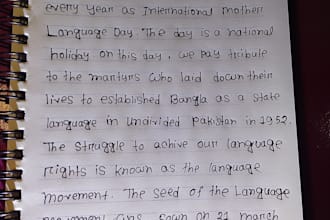 every year as International mother
Language Day. The day is a national
holiday on this day, we pay tribute
to the martyrs who laid down their
lives to established Bangla as a state
language in undivided Pakistan in 1952.
The struggle to achive our language
rights is known as the language
movement. The seed of the Language
was sown on 21 march